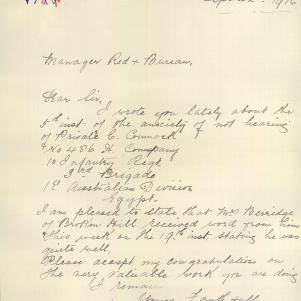 1916
Manager Red + Bureau,
Dear Sir,
I wrote you lately about the
inst. of the anxiety of not hearing
of Private E.
No 486 H. Company
10 Infantry Regt
3rd Brigade
1st Australian Division
Egypt-
I am pleased to state, that Mrs Berridge
of Broken Hill received word from him
this week on the 19th inst. stating he was
quite well,
Please accept my congratulations on
the very valuable work you are doing
I remain
Yours Faithfully